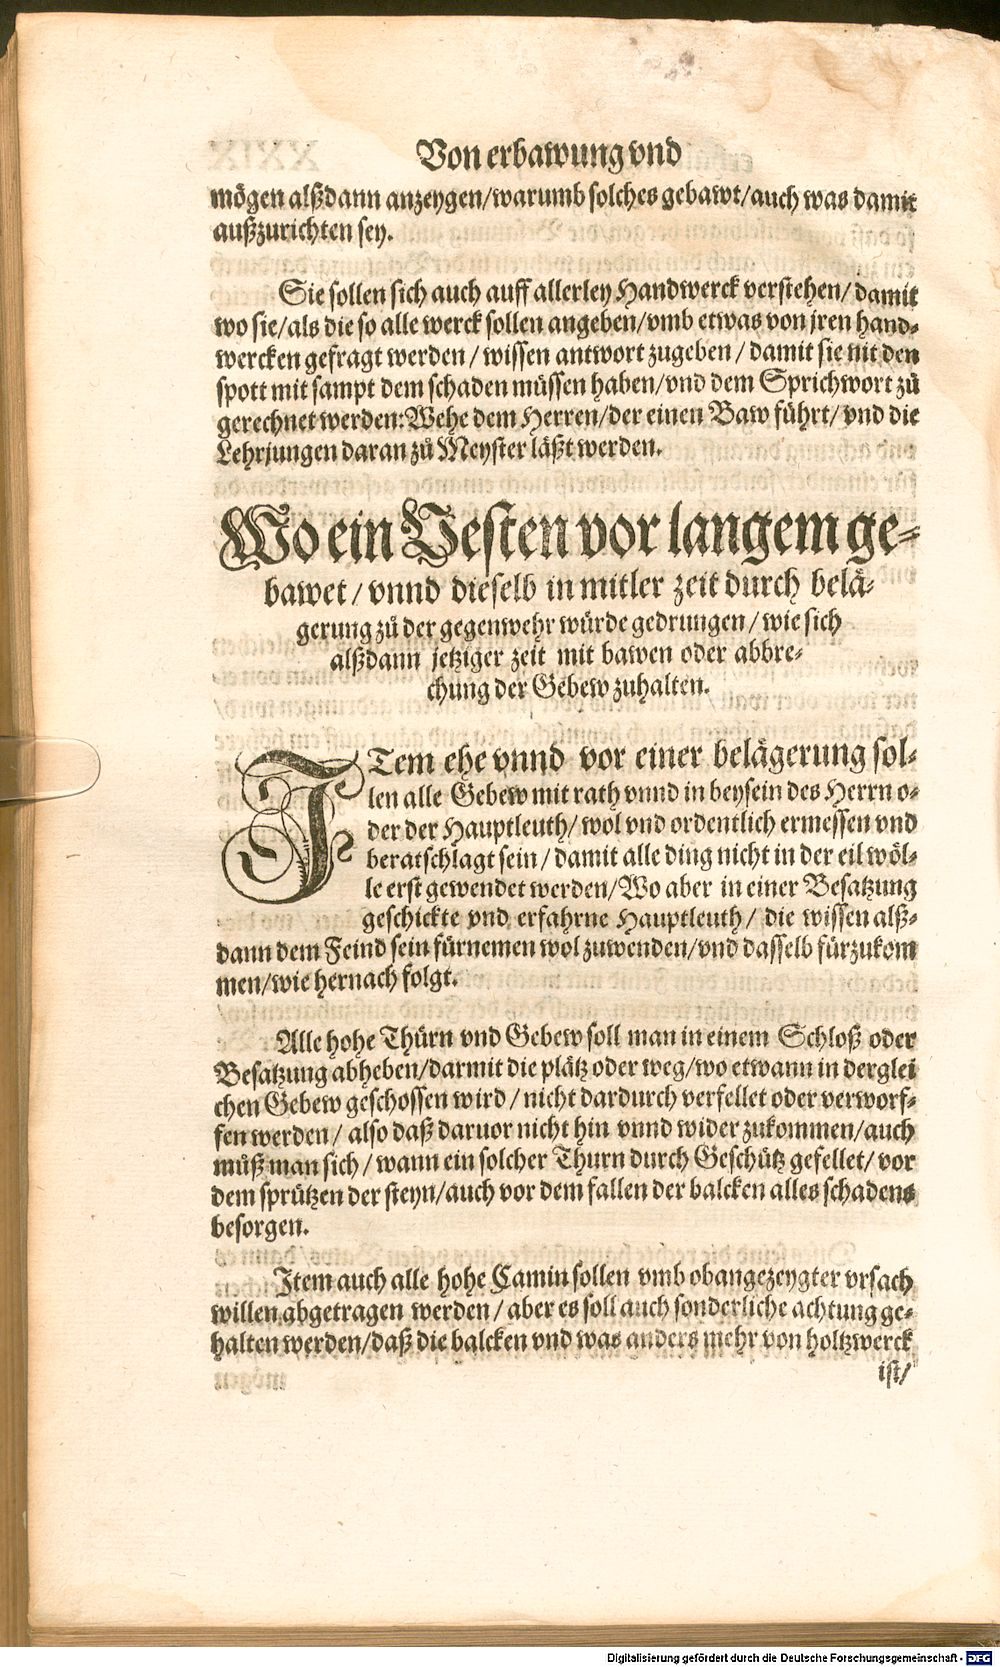 Von erbawung vnd
mögen alßdann anzeygen/warumb solches gebawt/auch was damit
außzurichten sey.
Sie sollen sich auch auff allerley Handwerck verstehen/ damit
wo sie/als die so alle werck sollen angeben/vmb etwas von jren hand-
wercken gefragt werden / wissen antwort zugeben / damit sie nit den
spott mit sampt dem schaden müssen haben/vnd dem Sprichwort zů
gerechnet werden: Wehe dem Herren/der einen Baw führt/ vnd die
Lehrjungen daran zů Meyster läßt werden.
Wo ein Vesten vor langem ge-
bawet / vnnd dieselb in mitler zeit durch belä-
gerung zů der gegenwehr würde gedrungen / wie sich
alßdann jetziger zeit mit bawen oder abbre-
chung der Gebew zuhalten.
ITem ehe vnnd vor einer belägerung sol-
len alle Gebew mit rath vnnd in beysein des Herrn o-
der der Hauptleuth/ wol vnd ordentlich ermessen vnd
beratschlagt sein / damit alle ding nicht in der eil wöl-
le erst gewendet werden/Wo aber in einer Besatzung
geschickte vnd erfahrne Hauptleuth / die wissen alß-
dann dem Feind sein fürnemen wol zuwenden/vnd dasselb fürzukom
men/wie hernach folgt.
Alle hohe Thürn vnd Gebew soll man in einem Schloß oder
Besatzung abheben/darmit die plätz oder weg/wo etwann in derglei
chen Gebew geschossen wird / nicht dardurch verfellet oder verworf-
fen werden / also daß daruor nicht hin vnnd wider zukommen/auch
můß man sich / wann ein solcher Thurn durch Geschütz gefellet/ vor
dem sprützen der steyn/auch vor dem fallen der balcken alles schadens
besorgen.
Item auch alle hohe Camin sollen vmb obangezeygter vrsach
willen abgetragen werden / aber es soll auch sonderliche achtung ge-
halten werden/daß die balcken vnd was anders mehr von holtzwerck
ist/
Digitalisierung gefördert durch die Deutsche Forschungsgemeinschaft - DFG